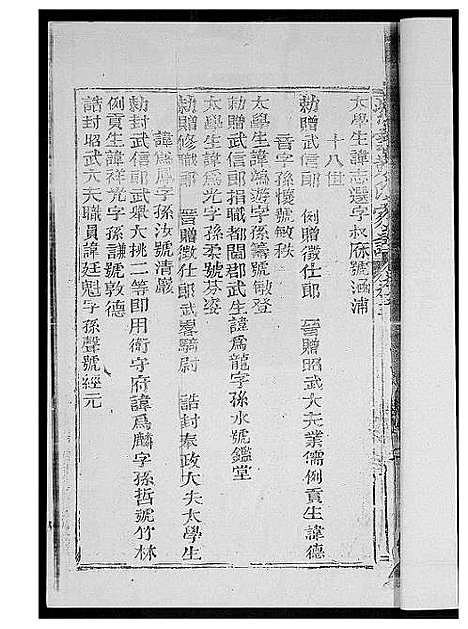 太學生諱志選字叔 號涵浦
十八世
勅贈武信郎 例贈徵仕郎 晉贈昭武大夫業儒例貢生諱德
晉字孫懷號敏秩
太學生諱瀚遊字孫籌號敏登
勅贈武信郎捐職都閫郡武生諱爲龍字孫水號鑑堂
太學生諱爲光字孫柔號芬姿
勅贈修職郎 晉贈徵仕郎武畧騎尉 誥封奉政大夫太學生
諱爲爲字孫汝號清嚴
勅封武信郎武舉大挑二等即用衛守府諱爲麟字孫哲號竹林
例貢生諱祥光字孫謙號敦德
誥封昭武大夫職員諱廷魁字孫聲號經元